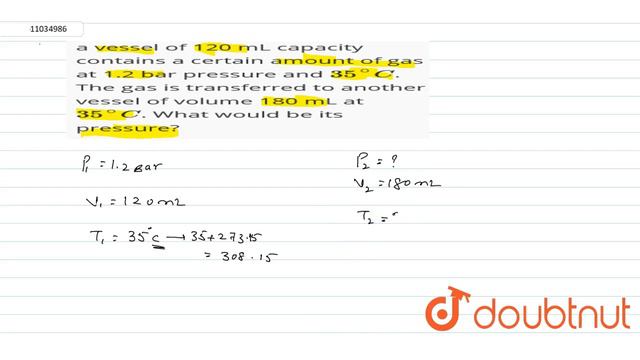 11034986
a vessel of 120 mL capacity
contains a certain amount of gas
at 1.2 bar pressure and 35° C.
The gas is transferred to another
vessel of volume 180 mL at
35° C. What would be its
pressure?
P₁ = 1.2 Bar
P₂ = ?
V₂ = 180 mL
V₁ = 120 mL
T₂ =
T₁ = 35°C → 35 + 273.15
= 308.15
doubtnut